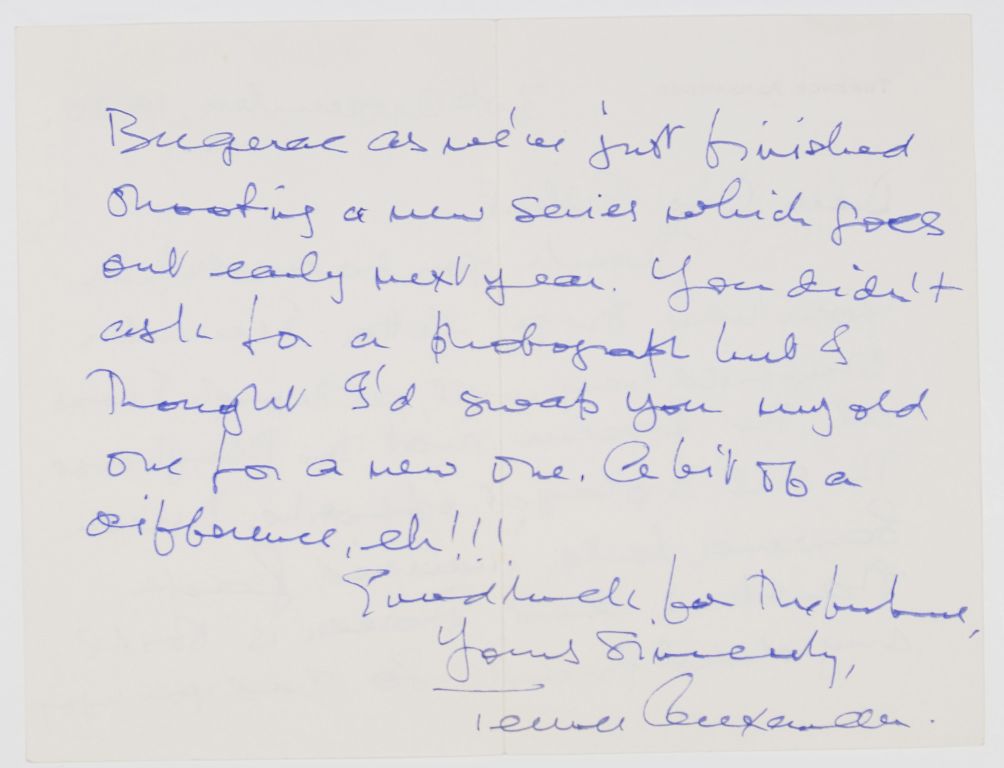 Bergerac as we've just finished
shooting a new series which goes
out early next year. You didn't
ask for a photograph but I
thought I'd swap you my old
one for a new one. A bit of a
difference, eh!!!
Good luck for the future,
Yours Sincerely,
Terence Alexander.